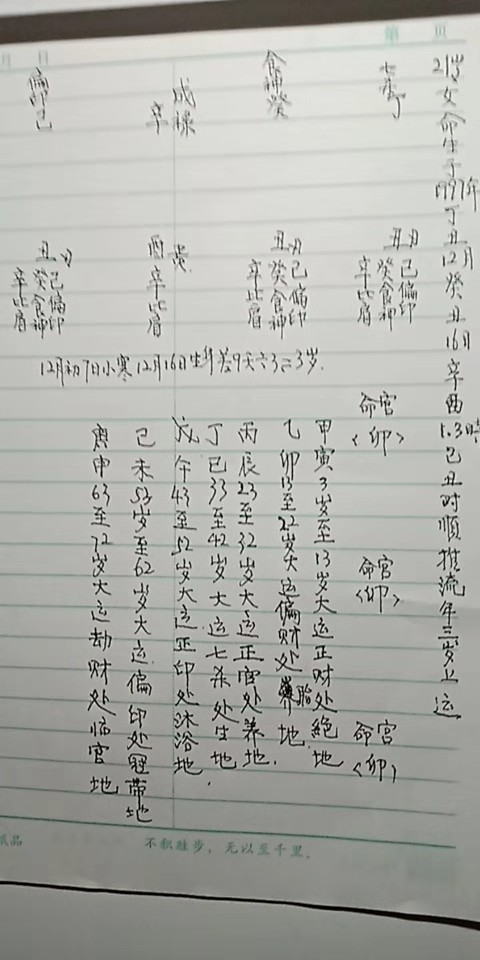 第 页
月 日
21岁女命生于1997年丁丑12月癸丑16日辛酉1.3时己丑时顺推流年三岁上运
七杀丁
食神癸
成禄
辛
偏印己
丑月
己偏印
癸食神
辛比肩
丑月
己偏印
癸食神
辛比肩
酉
辛比肩
丑月
己偏印
癸食神
辛比肩
12月初7日小寒12月16日生年差9天六3二3岁.
命宫
<卯>
命宫
<卯>
命宫
<卯>
甲寅3岁至13岁大运正财处绝地
乙卯13至22岁大运偏财处胎地.
丙辰23至32岁大运正官处养地.
丁巳33至42岁大运七杀处生地.
戊午43至52岁大运正印处沐浴地
己未53岁至62岁大运偏印处冠带地
庚申63至72岁大运劫财处临官地
不积跬步，无以至千里。